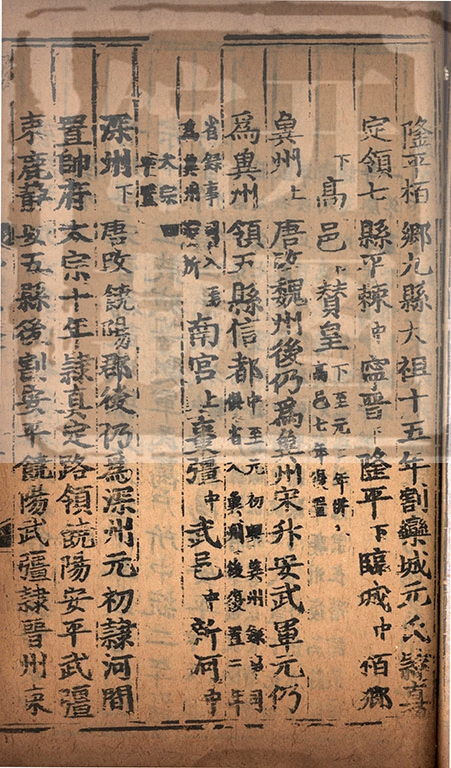 隆平栢鄉九縣太祖十五年割欒城元氏隸真
定領七縣平棘中寧晉隆平下臨城中栢鄉
下高邑下贊皇下至元二年併入高邑七年復置
冀州上唐改魏州後仍為冀州宋升安武軍元仍
為冀州領五縣信都中至元初與冀州錄事司俱省入冀州後復置二年
省錄事司入焉為冀州治所南宮上棗彊中武邑中新河中
太宗四年置
深州下唐改饒陽郡後仍為深州元初隸河間
置帥府太宗十年隸真定路領饒陽安平武彊
束鹿靜安五縣後割安平饒陽武彊隸晉州束